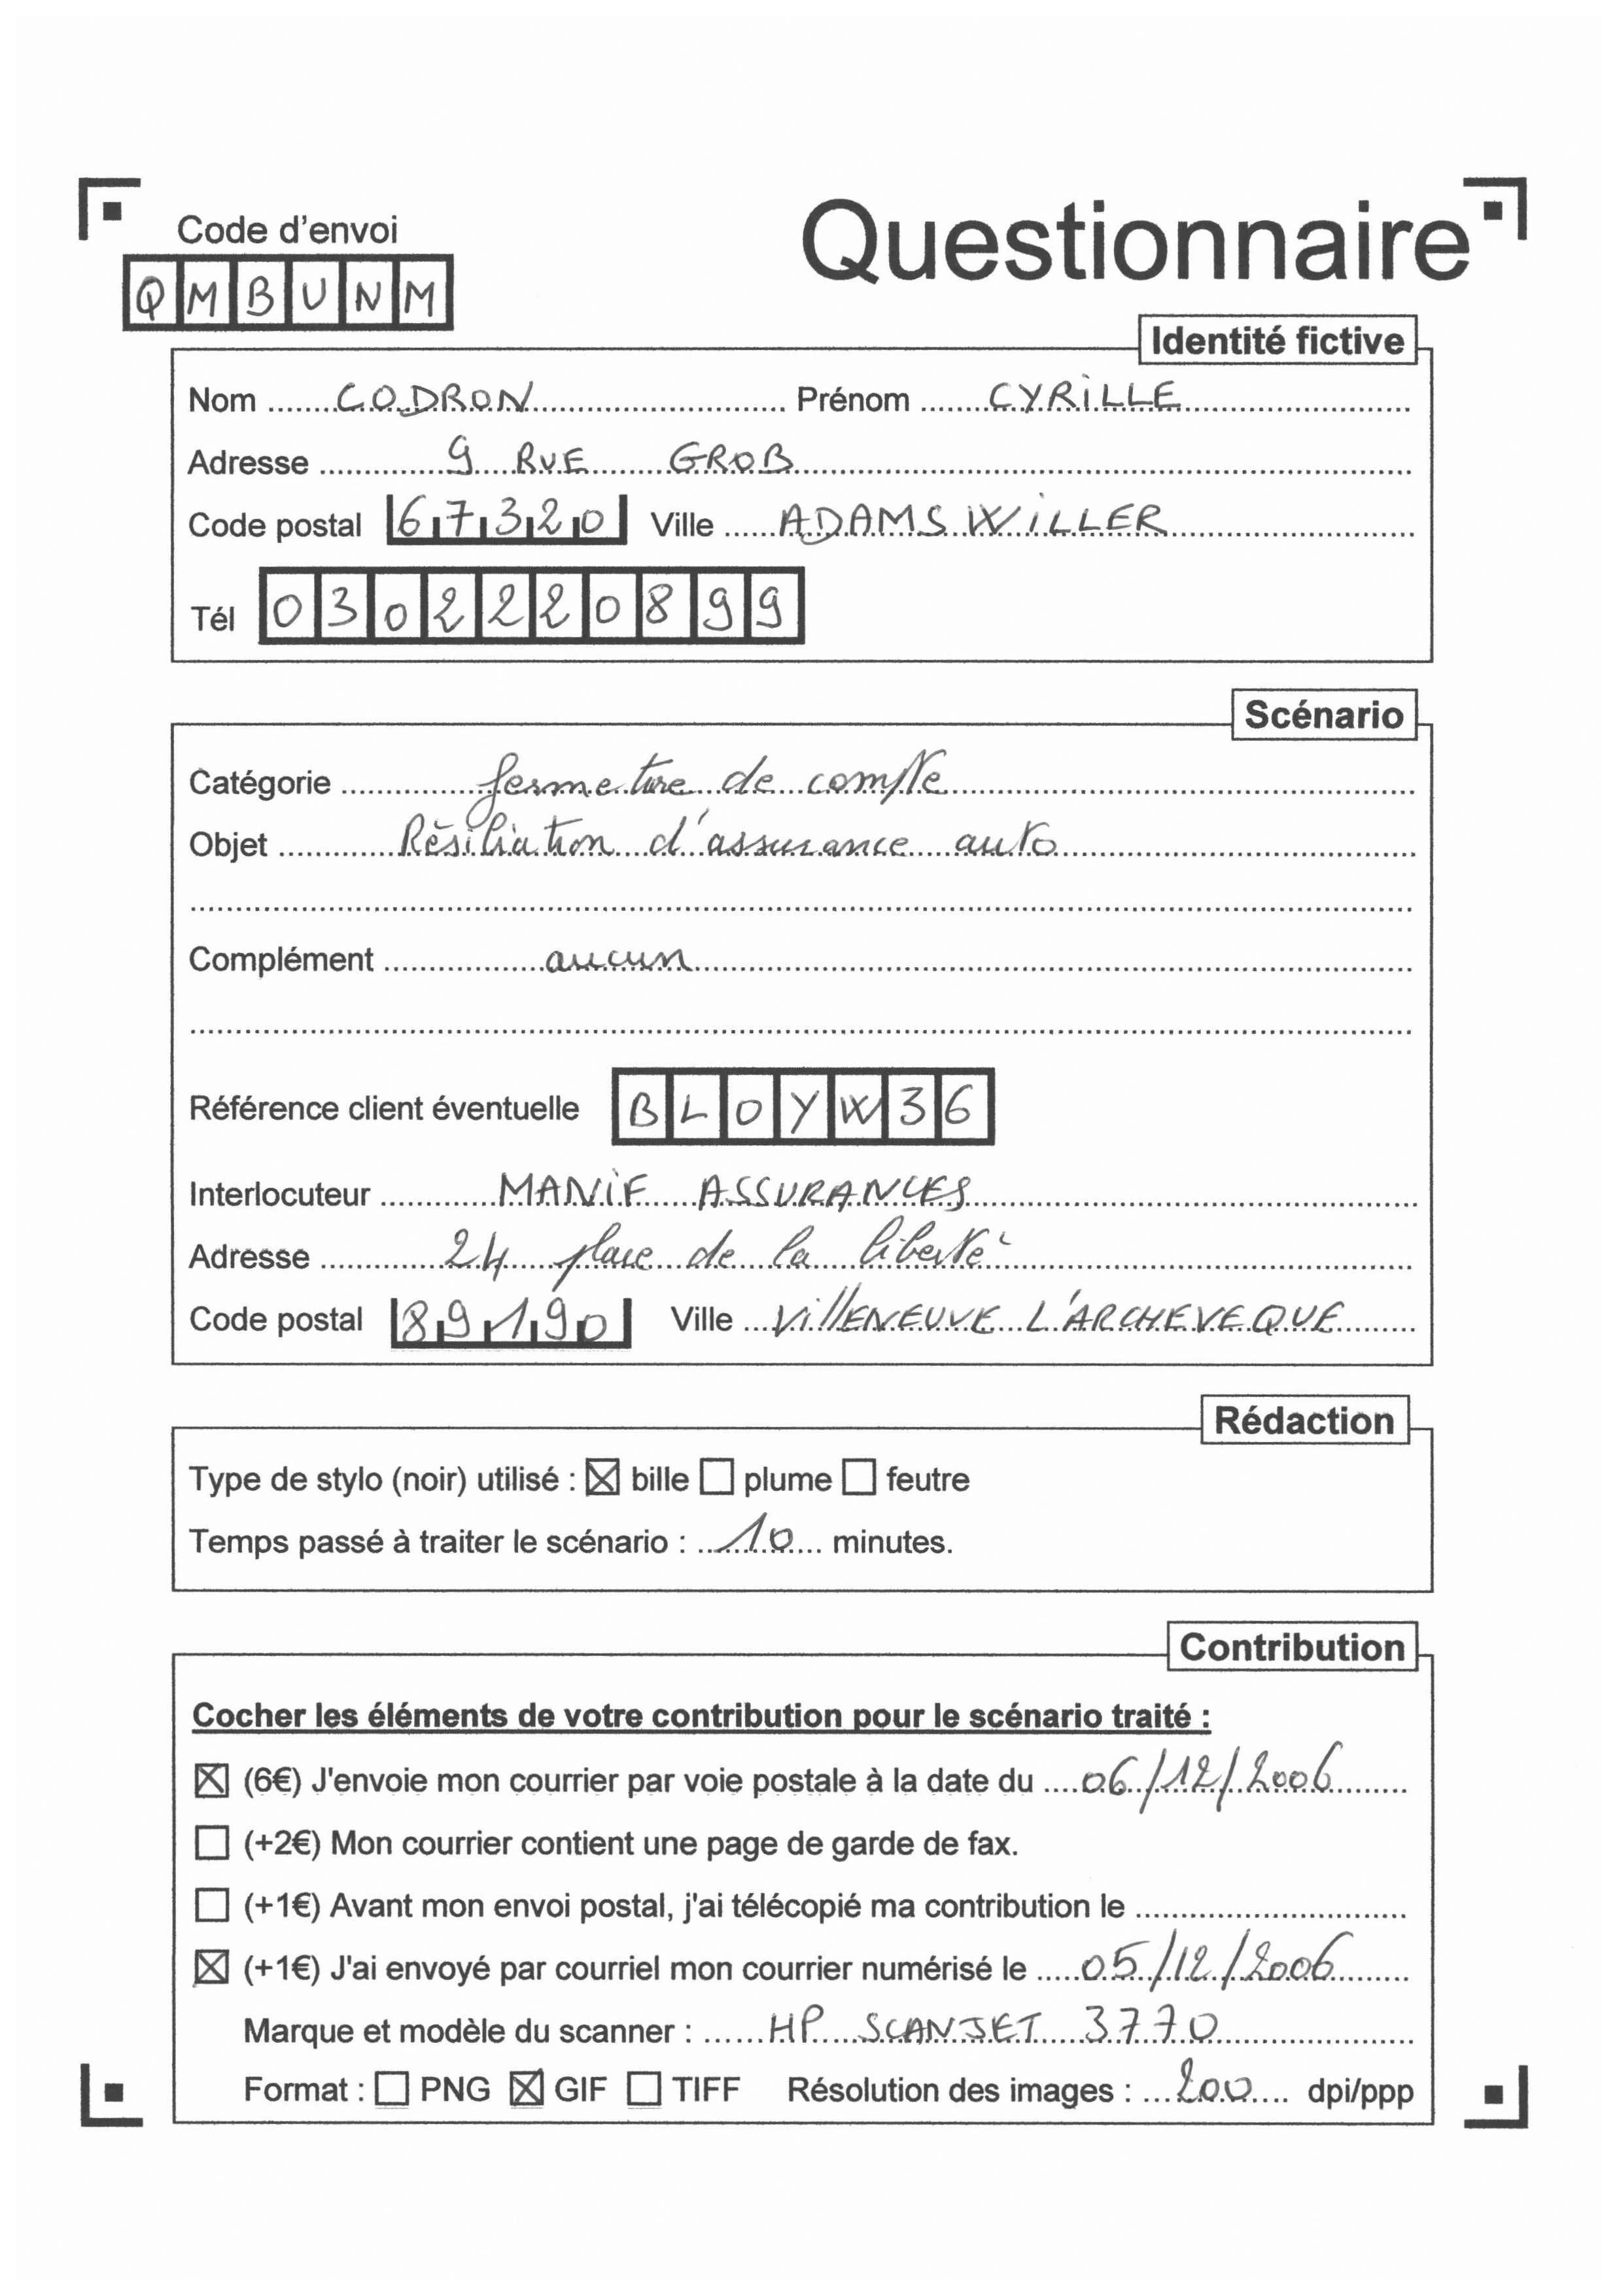 Code d'envoi
Questionnaire
QMBUNM
Identité fictive
Nom CODRON Prénom CYRILLE
Adresse 9 RUE GROB
Code postal 67320 Ville ADAMSWILLER
Tél 0302220899
Scénario
Catégorie fermeture de compte
Objet Résiliation d'assurance auto
Complément aucun
Référence client éventuelle BLOYW36
Interlocuteur MANIF ASSURANCES
Adresse 24 place de la liberté
Code postal 89190 Ville VillENEUVE L'ARCHEVEQUE
Rédaction
Type de stylo (noir) utilisé : ☒ bille ☐ plume ☐ feutre
Temps passé à traiter le scénario : 10 minutes.
Contribution
Cocher les éléments de votre contribution pour le scénario traité :
☒ (6€) J'envoie mon courrier par voie postale à la date du 06/12/2006
☐ (+2€) Mon courrier contient une page de garde de fax.
☐ (+1€) Avant mon envoi postal, j'ai télécopié ma contribution le
☒ (+1€) J'ai envoyé par courriel mon courrier numérisé le 05/12/2006
Marque et modèle du scanner : HP SCANJET 3770
Format : ☐ PNG ☒ GIF ☐ TIFF Résolution des images : 200 dpi/ppp